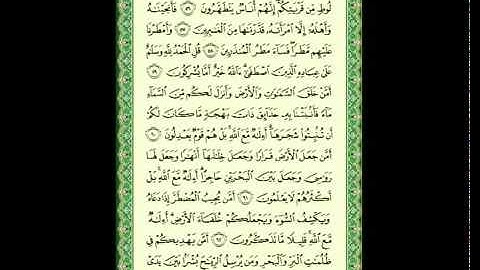 لُوطٍ مِّن قَرْيَتِكُمْ إِنَّهُمْ أُنَاسٌ يَتَطَهَّرُونَ ٥٦ فَأَنجَيْنَٰهُ
وَأَهْلَهُۥٓ إِلَّا ٱمْرَأَتَهُۥ قَدَّرْنَٰهَا مِنَ ٱلْغَٰبِرِينَ ٥٧ وَأَمْطَرْنَا
عَلَيْهِم مَّطَرًا فَسَآءَ مَطَرُ ٱلْمُنذَرِينَ ٥٨ قُلِ ٱلْحَمْدُ لِلَّهِ وَسَلَٰمٌ
عَلَىٰ عِبَادِهِ ٱلَّذِينَ ٱصْطَفَىٰٓ ءَآللَّهُ خَيْرٌ أَمَّا يُشْرِكُونَ ٥٩
أَمَّنْ خَلَقَ ٱلسَّمَٰوَٰتِ وَٱلْأَرْضَ وَأَنزَلَ لَكُم مِّنَ ٱلسَّمَآءِ
مَآءً فَأَنۢبَتْنَا بِهِۦ حَدَآئِقَ ذَاتَ بَهْجَةٍ مَّا كَانَ لَكُمْ
أَن تُنۢبِتُوا۟ شَجَرَهَآ أَءِلَٰهٌ مَّعَ ٱللَّهِ بَلْ هُمْ قَوْمٌ يَعْدِلُونَ ٦٠
أَمَّن جَعَلَ ٱلْأَرْضَ قَرَارًا وَجَعَلَ خِلَٰلَهَآ أَنْهَٰرًا وَجَعَلَ لَهَا
رَوَٰسِىَ وَجَعَلَ بَيْنَ ٱلْبَحْرَيْنِ حَاجِزًا أَءِلَٰهٌ مَّعَ ٱللَّهِ بَلْ
أَكْثَرُهُمْ لَا يَعْلَمُونَ ٦١ أَمَّن يُجِيبُ ٱلْمُضْطَرَّ إِذَا دَعَاهُ
وَيَكْشِفُ ٱلسُّوٓءَ وَيَجْعَلُكُمْ خُلَفَآءَ ٱلْأَرْضِ أَءِلَٰهٌ
مَّعَ ٱللَّهِ قَلِيلًا مَّا تَذَكَّرُونَ ٦٢ أَمَّن يَهْدِيكُمْ فِى
ظُلُمَٰتِ ٱلْبَرِّ وَٱلْبَحْرِ وَمَن يُرْسِلُ ٱلرِّيَٰحَ بُشْرًۢا بَيْنَ يَدَىْ